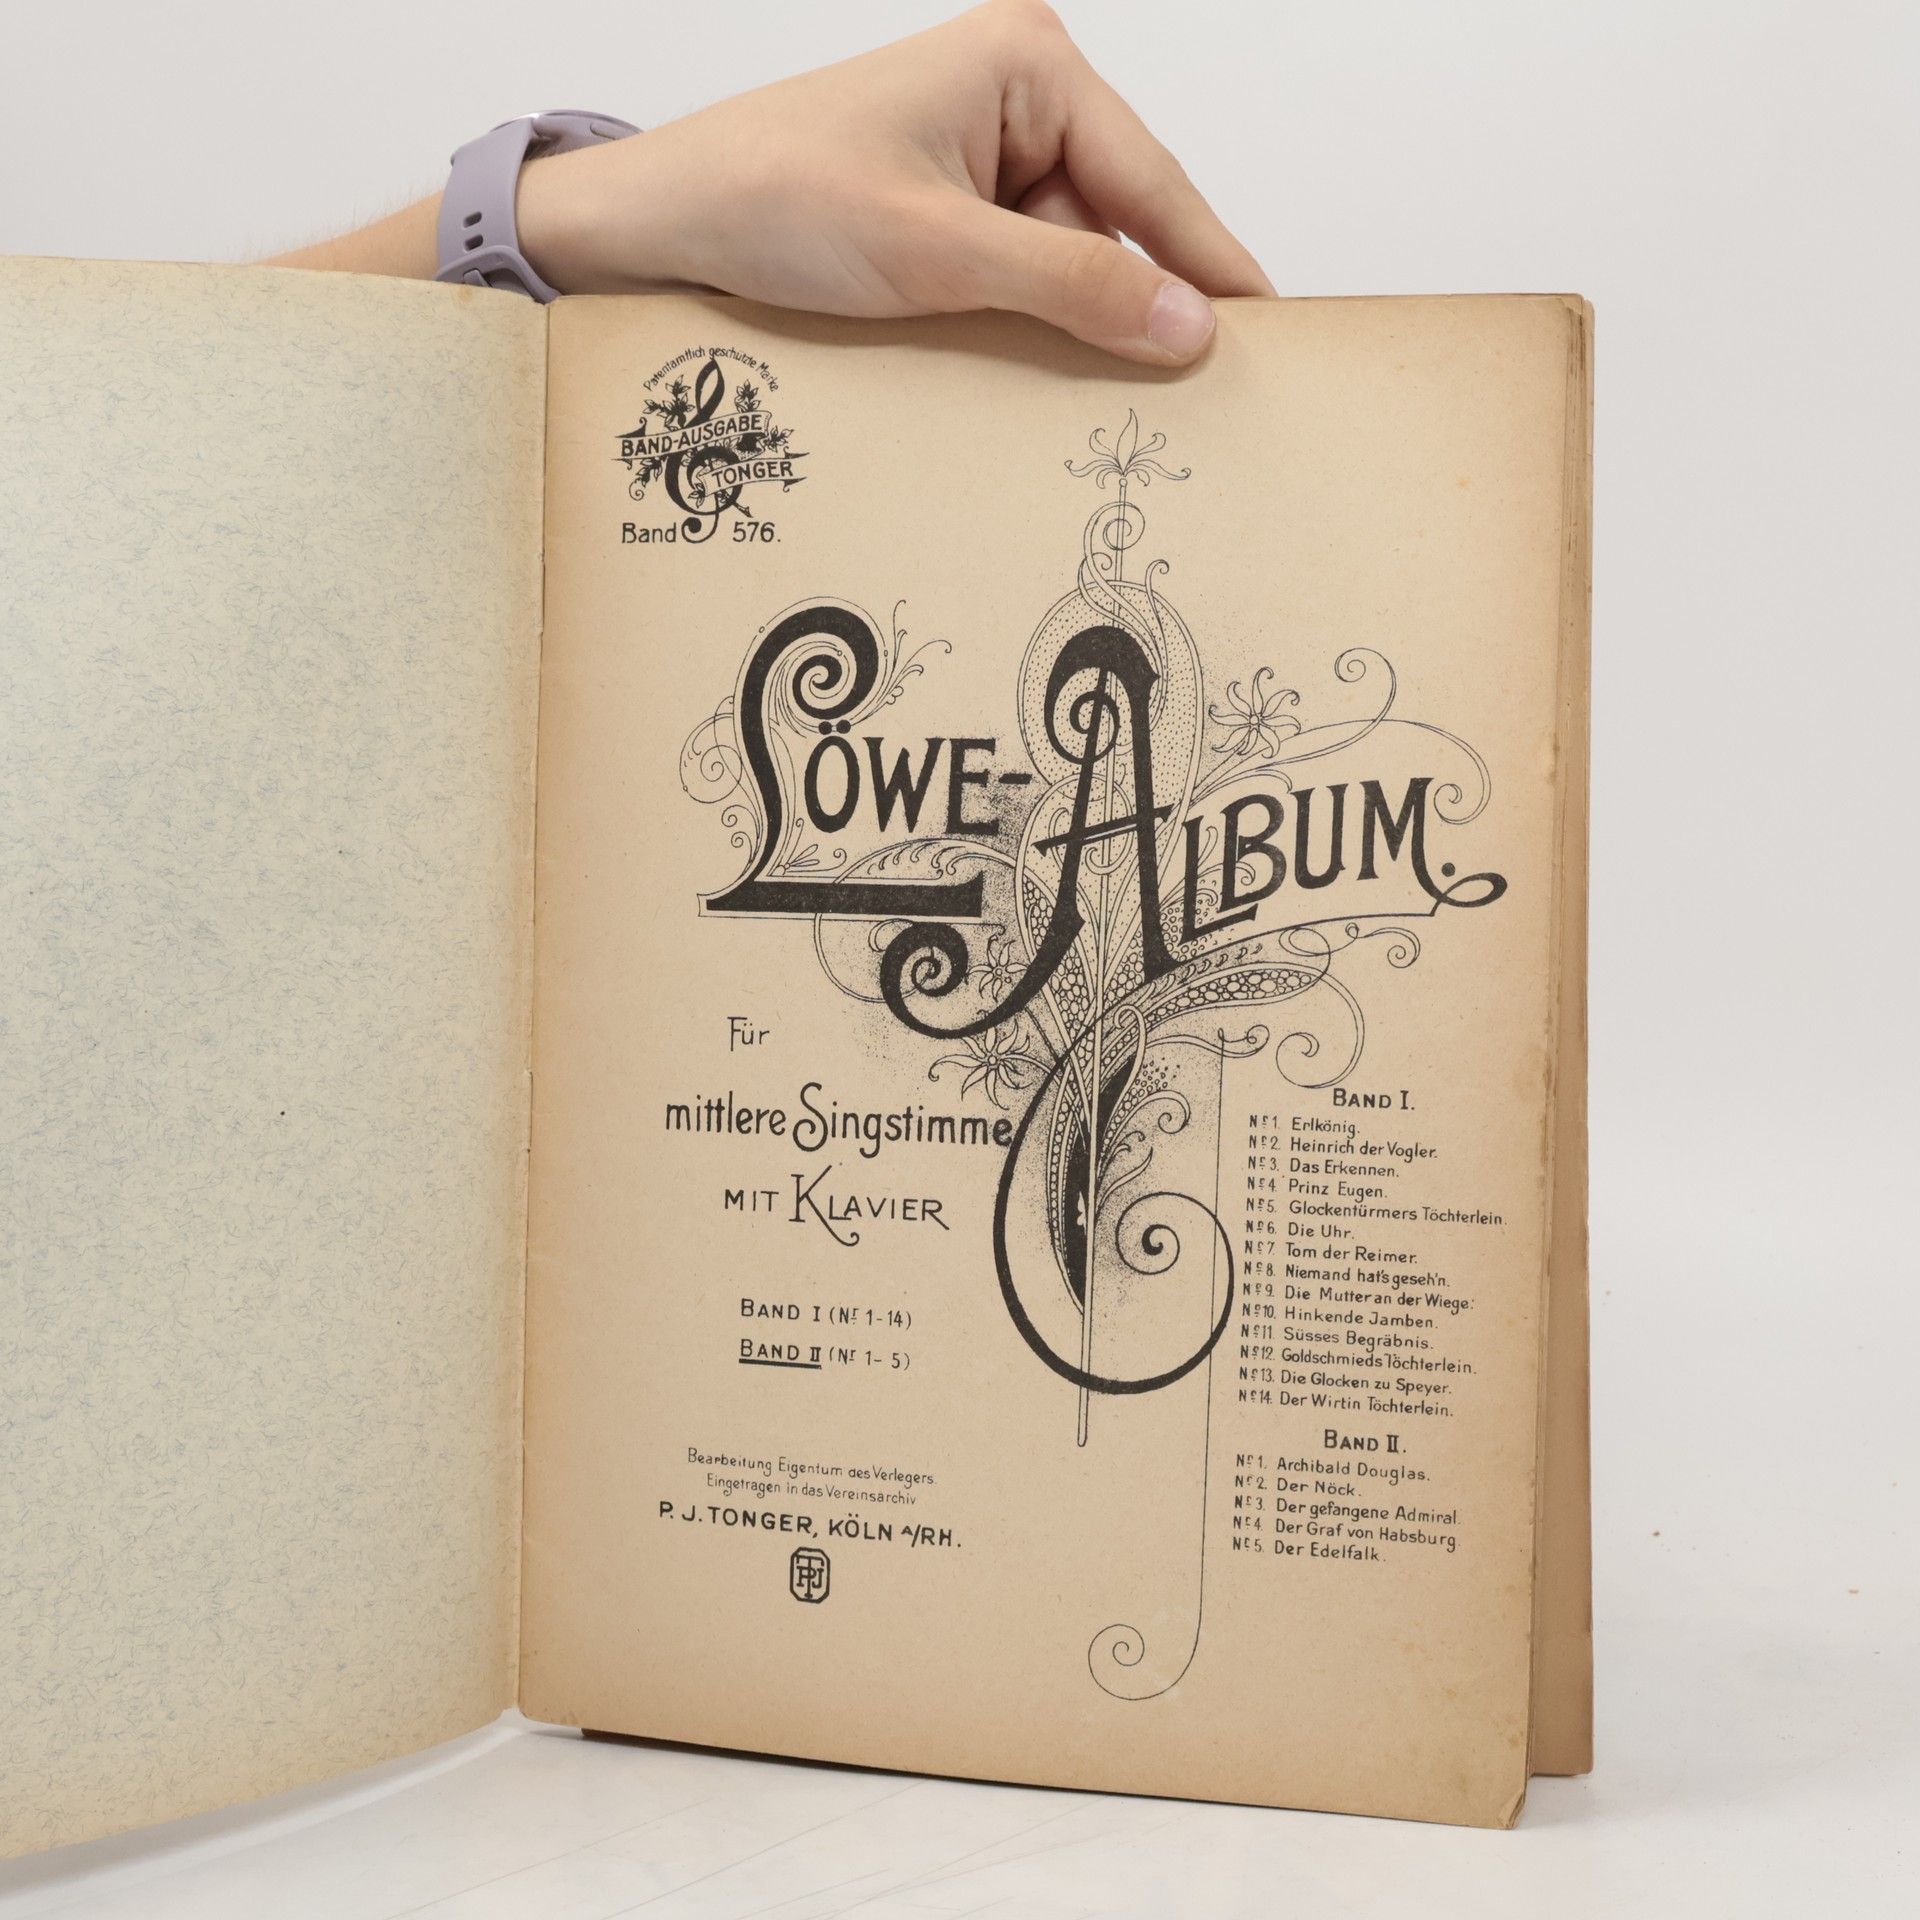 Patentamtlich geschützte Marke
BAND-AUSGABE
TONGER
Band 576.
LÖWE-ALBUM.
Für
mittlere Singstimme
MIT KLAVIER
BAND I (Nr 1-14)
BAND II (Nr 1-5)
Bearbeitung Eigentum des Verlegers.
Eingetragen in das Vereinsarchiv
P. J. TONGER, KÖLN A/RH.
PJT
BAND I.
Nº 1. Erlkönig.
Nº 2. Heinrich der Vogler.
Nº 3. Das Erkennen.
Nº 4. Prinz Eugen.
Nº 5. Glockentürmers Töchterlein.
Nº 6. Die Uhr.
Nº 7. Tom der Reimer.
Nº 8. Niemand hat's geseh'n.
Nº 9. Die Mutter an der Wiege.
Nº 10. Hinkende Jamben.
Nº 11. Süsses Begräbnis.
Nº 12. Goldschmieds Töchterlein.
Nº 13. Die Glocken zu Speyer.
Nº 14. Der Wirtin Töchterlein.
BAND II.
Nº 1. Archibald Douglas.
Nº 2. Der Nöck.
Nº 3. Der gefangene Admiral.
Nº 4. Der Graf von Habsburg.
Nº 5. Der Edelfalk.